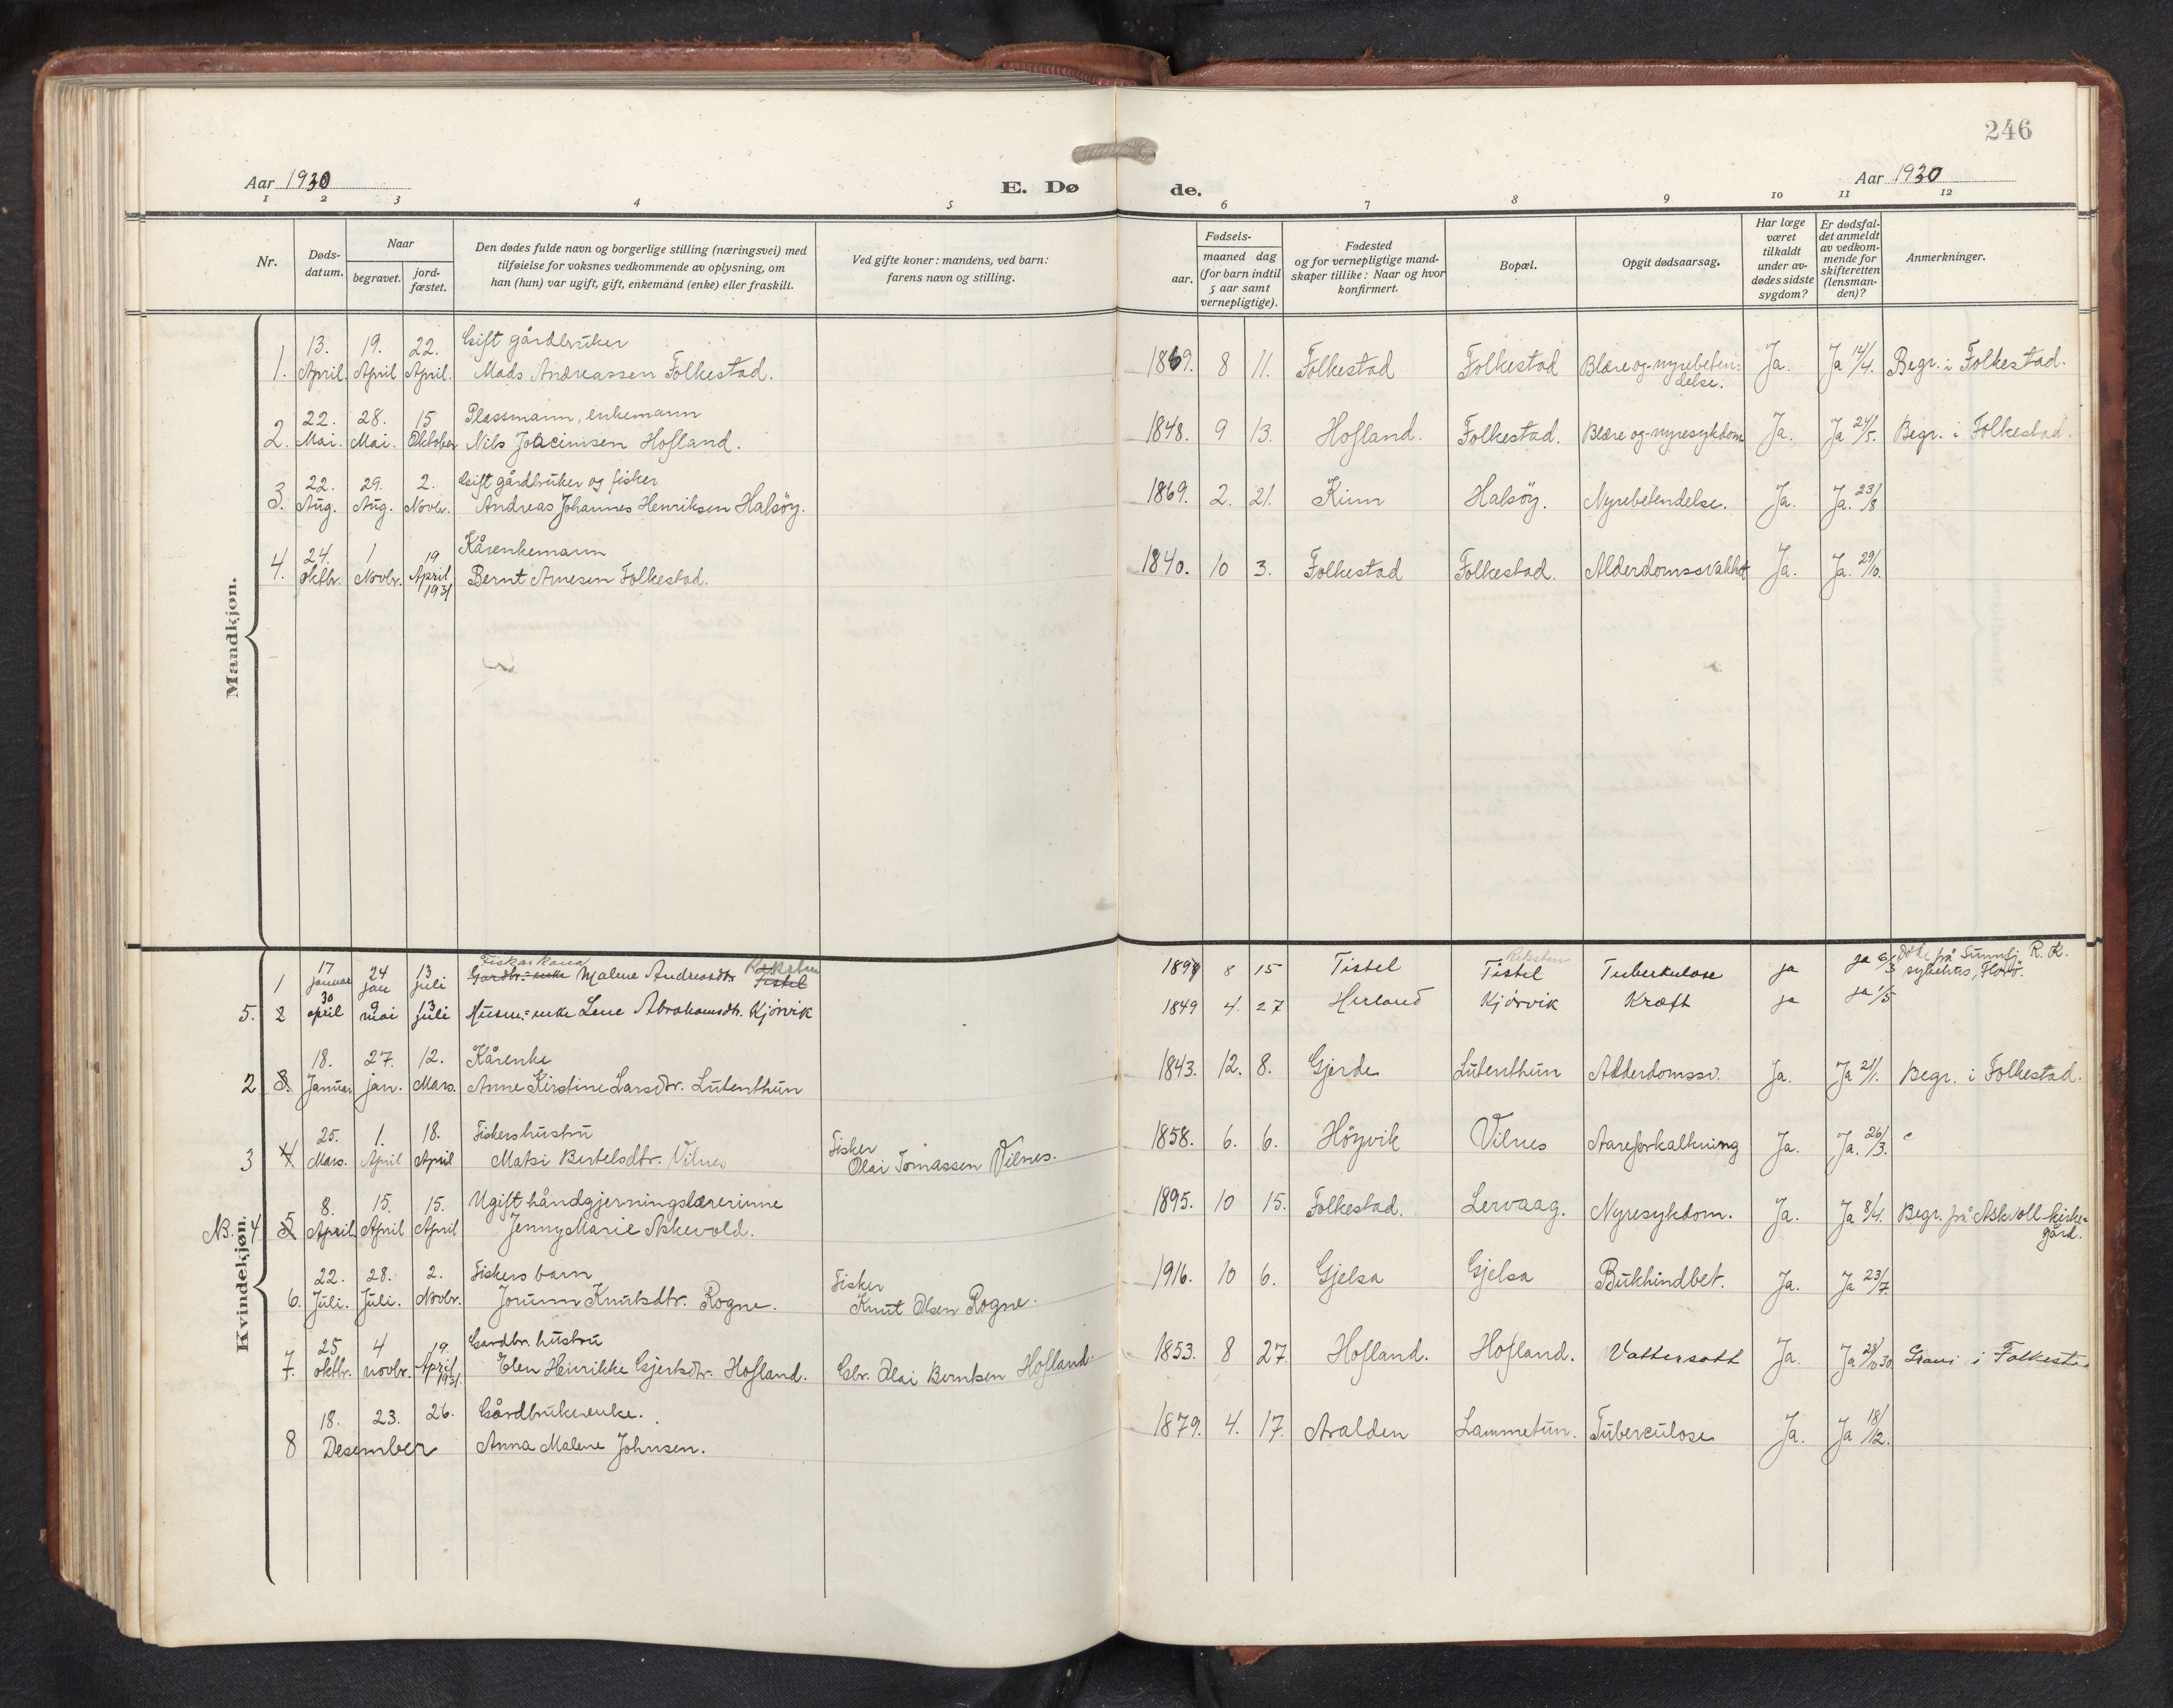 246
Aar 1930
E. Døde.
Aar 1930
1 2 3 4 5 6 7 8 9 10 11 12
Nr.
Døds-
datum.
Naar
begravet.
jord-
fæstet.
Den dødes fulde navn og borgerlige stilling (næringsvei) med
tilføielse for voksnes vedkommende av oplysning, om
han (hun) var ugift, gift, enkemand (enke) eller fraskilt.
Ved gifte koner: mandens, ved barn:
farens navn og stilling.
Fødsels-
aar.
maaned dag
(for barn indtil
5 aar samt
vernepligtige).
Fødested
og for vernepligtige mand-
skaper tillike: Naar og hvor
konfirmert.
Bopæl.
Opgit dødsaarsag.
Har læge
været
tilkaldt
under av-
dødes sidste
sygdom?
Er dødsfal-
det anmeldt
av vedkom-
mende for
skifteretten
(lensman-
den)?
Anmerkninger.
Mandkjøn.
1. 13. April 19. April 22. April. Gift gårdbruker
Mads Andreassen Folkestad. 1869. 8 11. Folkestad Folkestad Blære og-nyrebeten-
delse. Ja. Ja 14/4. Begr. i Folkestad.
2. 22. Mai. 28. Mai. 15 Oktober Plassmann, enkemann
Nils Joacimsen Hofland. 1848. 9 13. Hofland. Folkestad. Blære og-nyresykdom Ja. Ja 24/5. Begr. i Folkestad.
3. 22. Aug. 29. Aug. 2. Novbr. Gift gårdbruker og fisker
Andreas Johannes Henriksen Halsöy. 1869. 2. 21. Kinn Halsöy. Nyrebetendelse. Ja. Ja. 23/8
4. 24. oktbr. 1 Novbr. 19 April 1931 Kårenkemann
Bernt Arnesen Folkestad. 1840. 10 3. Folkestad Folkestad. Alderdomssvakhet Ja. Ja. 29/10.
Kvindekjøn.
1 17 januar 24 jan 13 juli Fiskarkona
Gardbr.-enke Malene Andreasdtr. Tistel Reksten 1899 8 15 Tistel Tistel Reksten Tuberkulose ja ja 6/3 Döde på Sunnfj. R. K.
sykehus, Florö.
5. 2 30 april 9 mai 13 juli Husm.-enke Lene Abrahamsdtr. Kjörvik 1849 4. 27 Herland Kjörvik Kræft ja ja 1/5
2 3 18. Januar 27. jan. 12. Mars. Kårenke
Anne Kirstine Larsdtr. Lutenthun 1843. 12. 8. Gjerde Lutenthun Alderdomssv. Ja. Ja 21/1. Begr. i Folkestad.
3 4 25. Mars. 1. April 18. April Fiskershustru
Matsi Bertelsdtr. Vilnes Fisker
Olai Tomassen Vilnes. 1858. 6. 6. Höyvik Vilnes Aareforkalkning Ja. Ja. 26/3.
NB. 4 5 8. April 15. April 15. April Ugift håndgjerningslærerinne
Jenny Marie Askevold. 1895. 10 15. Folkestad. Lervaag. Nyresykdom. Ja. Ja 8/4. Begr. på Askvoll kirke-
gård.
6. 22. Juli. 28. Juli. 2. Novbr. Fiskers barn
Jorunn Knutsdtr. Rogne. Fisker
Knut Olsen Rogne. 1916. 10 6. Gjelsa Gjelsa Bukhindbet. Ja. Ja 23/7
7. 25 oktbr. 4 novbr. 19. April 1931. Gardbr. hustru
Elen Henrikke Gjertsdtr. Hofland. Gbr. Olai Berntsen Hofland. 1853. 8 27. Hofland. Hofland. Vattersott Ja. Ja 28/10 30 Gravl. i Folkestad
8 18. 23. 26. Desember Gårdbrukerenke.
Anna Malene Johnsen. 1879. 4. 17. Aralden Lammetun. Tuberculose Ja. Ja 18/12.